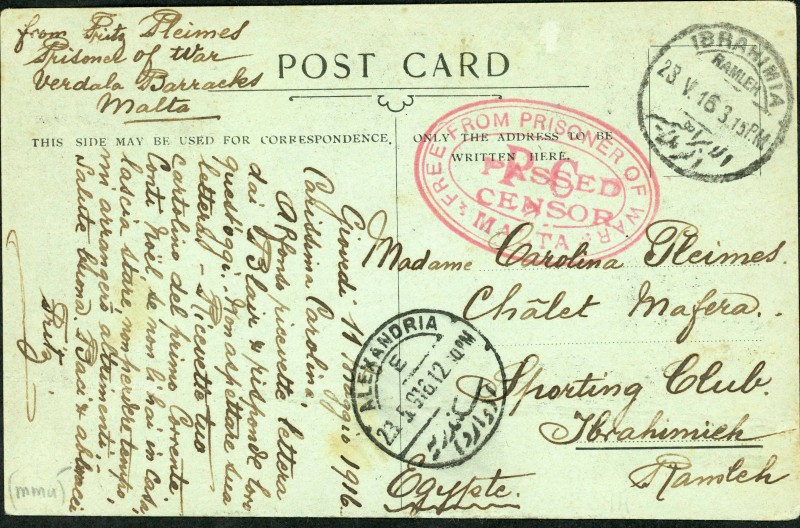 from Fritz Pleimes
Prisoner of War
Verdala Barracks
Malta
POST CARD
THIS SIDE MAY BE USED FOR CORRESPONDENCE.
ONLY THE ADDRESS TO BE
WRITTEN HERE.
FREE FROM PRISONER OF WAR
P.C.
PASSED
CENSOR
MALTA
IBRAHIMIA
RAMLEH
23 V 16 3.15PM
Giovedi 11 Maggio 1916.
Carissima Carolina,
Alfonso ricevette lettera
dai Blair & risponde loro
quest'oggi. Non aspettare sua
lettera - Ricevetti tuo
cartolina del primo Corrente
Conti Noël se non li hai in casa
lascia stare, non perdere tempo,
mi arrangerò altrimenti.
Salute buona Baci & abbracci
Fritz
Madame Carolina Pleimes
Châlet Mafera.
Sporting Club.
Ibrahimieh
Ramleh
Egypte.
ALEXANDRIA
E
23.5.916.12.30PM
(mmu)